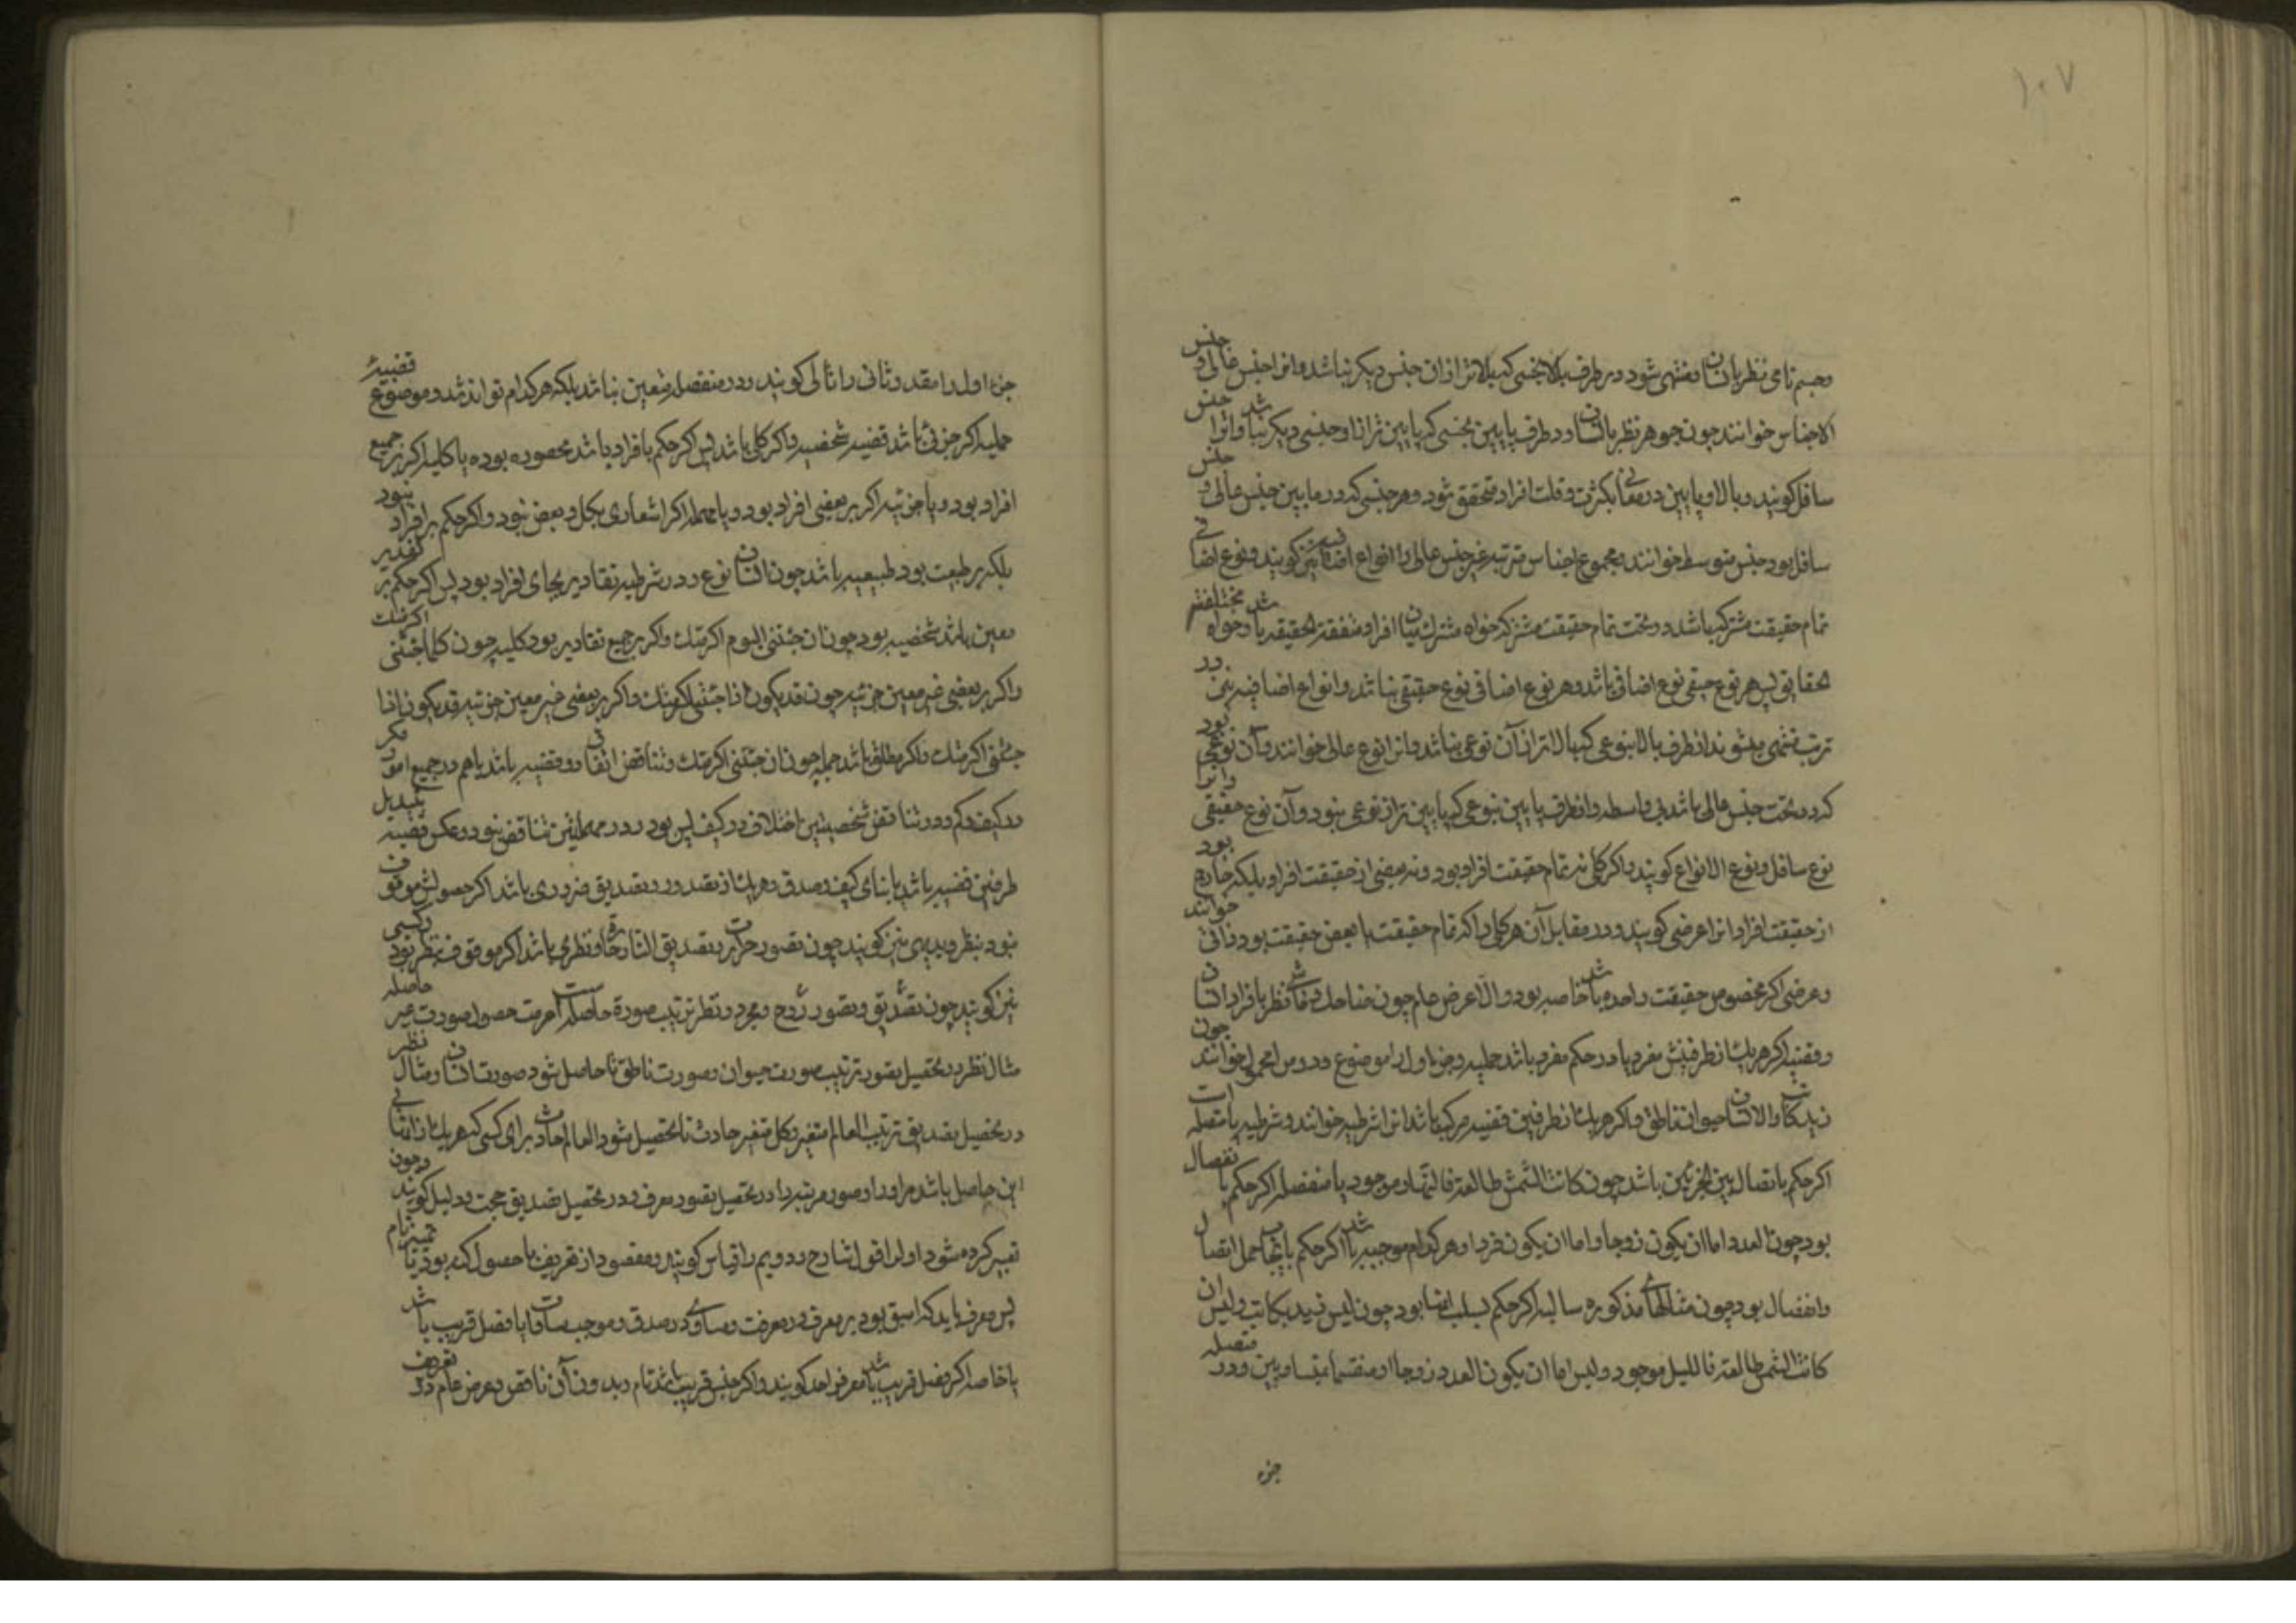 ۱۰۷
وجسم نامی نظر بانسان ومنتهی شود در طرف بالا بجنسی که بالاتر ازان جنس دیکر نباشد وانرا جنس عالی وجنس
الاجناس خوانند چون جوهر نظر بانسان ودر طرف پایین بجنسی که پایین تر ازو جنسی دیکر نباشد وانرا جنس
سافل کویند وبالا وپایین درمعانی بکثرت وقلت افراد متحقق شود وهر جنسی که درمابین جنس عالی وجنس
سافل بود جنس متوسط خوانند ومجموع اجناس مترتبه غیر جنس عالی را انواع اضافیه نیز کویند ونوع اضافی
تمام حقیقت مشترکه باشد در تحت تمام حقیقت مشترکه خواه مشترک میان افراد متفقة الحقیقه باشد وخواه مختلفة
الحقایق پس هر نوع حقیقی نوع اضافی باشد وهر نوع اضافی نوع حقیقی نباشد وانواع اضافیه نیز در
ترتب منتهی میشوند از طرف بالا بنوعی که بالاتر ازان نوعی نباشد وانرا نوع عالی خوانند وآن نوعی بود
که در تحت جنس عالی باشد بی واسطه واز طرف پایین بنوعی که پایین تر ازو نوعی نبود وآن نوع حقیقی وانرا
نوع سافل ونوع الانواع کویند واکر کلی نه تمام حقیقت افراد بود ونه بعضی از حقیقت افراد بلکه خارج بود
از حقیقت افراد انرا عرضی کویند ودر مقابل آن هر کلی را که تمام حقیقت یا بعض حقیقت بود ذاتی خوانند
وعرضی اکر مخصوص حقیقت واحده باشد خاصه بود والا عرض عام چون ضاحک وماشی نظر بافراد انسان
وقضیه اکر هریک از طرفینش مفرد یا در حکم مفرد باشد حملیه وجزء اول را موضوع ودومین را محمول خوانند چون
زید کاتب والانسان حیوان ناطق واکر هریک از طرفین قضیه مرکب باشد انرا شرطیه خوانند وشرطیه یا متصله است
اکر حکم باتصال بین الجزئین باشد چون کانت الشمس طالعة فالنهار موجود یا منفصله اکر حکم بانفصال
بود چون العدد اما ان یکون زوجا واما ان یکون فردا وهر کدام موجبه باشد اکر حکم باثبات حمل اتصال
وانفصال بود چون مثالهای مذکوره سالبه اکر حکم بسلب اینها بود چون لیس زید بکاتب ولیس ان
کانت الشمس طالعة فاللیل موجود ولیس اما ان یکون العدد زوجا او منقسما بمتساویین ودر متصله
جزء
جزء اول را مقدم وثانی را تالی کویند ودر منفصله متعین نباشد بلکه هر کدام تواند شد وموضوع قضیه
حملیه اکر جزئی باشد قضیه شخصیه واکر کلی باشد پس اکر حکم بافراد باشد محصوره بوده یا کلیه اکر بر جمیع
افراد بود ویا جزئیه اکر بر بعضی افراد بود ویا مهمله اکر اشعاری بکل وبعض نبود واکر حکم بر افراد نبود
بلکه بر طبیعت بود طبیعیه باشد چون انسان نوع ودر شرطیه تقادیر بجای افراد بود پس اکر حکم بر تقدیر
معین باشد شخصیه بود چون ان جئتنی الیوم اکرمتک واکر بر جمیع تقادیر بود کلیه چون کلما جئتنی اکرمتک
واکر بر بعضی غیر معین جزئیه چون قد یکون اذا جئتنی اکرمتک واکر بر بعضی غیر معین جزئیه قد یکون اذا
جئتنی اکرمتک واکر مطلق باشد مهمله چون ان جئتنی اکرمتک وتناقض اتفاق دو قضیه باشد باهم در جمیع امور مکر
در کیف وکم ودر تناقض شخصیتین اختلاف در کیف بس بود ودر مهملتین تناقض نبود وعکس قضیه تبدیل
طرفین قضیه باشد با بقای کیف وصدق وهریک از تصور وتصدیق ضروری باشد اکر حصولش موقوف
نبود بنظر وبدیهی نیز کویند چون تصور حرارت وتصدیق النار حارة ونظری باشد اکر موقوف بنظر بود وکسبی
نیز کویند چون تصدیق وتصور روح ومجرد ونظر ترتیب صورة حاصله است از جهت حصول صورت غیر حاصله
مثال نظر در تحصیل تصور ترتیب صورت حیوان وصورت ناطق تا حاصل شود صورت انسان ومثال نظر
در تحصیل تصدیق ترتیب العالم متغیر وکل متغیر حادث تا تحصیل شود العالم حادث برای کسی که هریک
این حاصل باشد مر اورا وصور مرتبه را در تحصیل تصور معرف ودر تحصیل تصدیق حجت ودلیل کویند وچون
تعبیر کرده شود اول را قول شارح ودویم را قیاس کویند ومقصود از تعریف یا حصول کنه بود یا تمییز تام
پس معرف باید که اسبق بود بر معرف در معرفت ومساوی در صدق وموجب مساوات یا فصل قریب باشد
یا خاصه اکر فصل قریب باشد معرف را حد کویند واکر جنس قریب باشد تام وبدون آن ناقص وعرض عام در تعریف